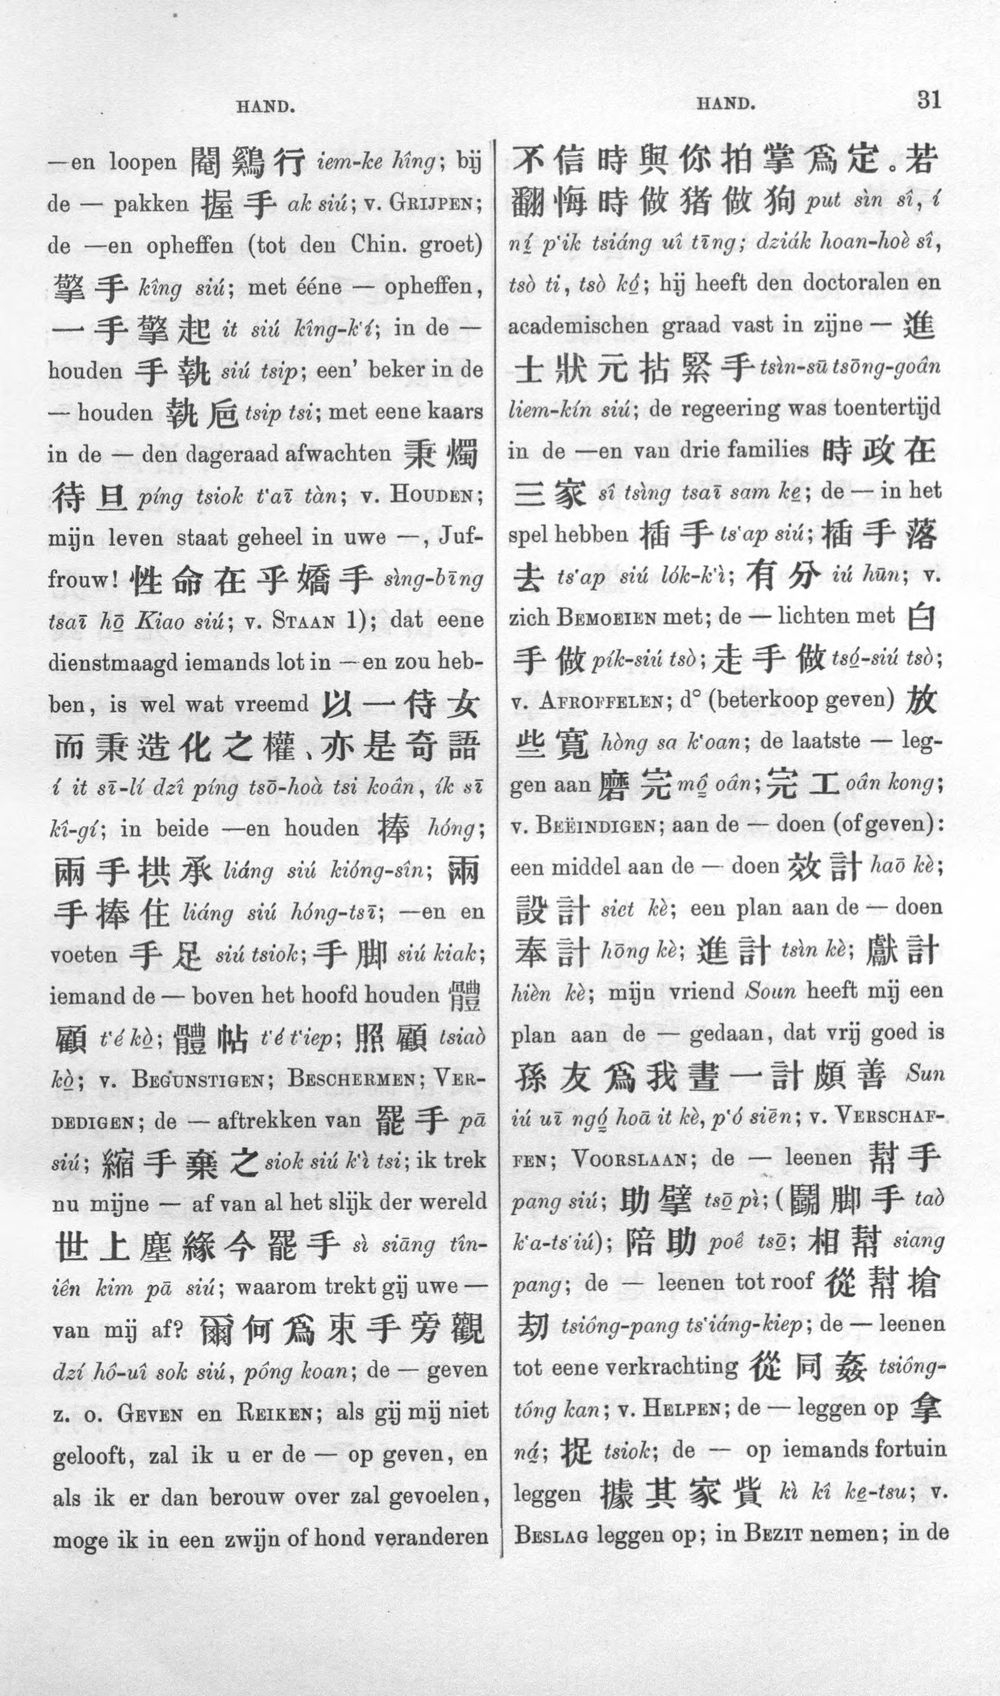 HAND.
—en loopen 閹鷄行 iem-ke hîng; bij
de — pakken 握手 ak siú; v. GRIJPEN;
de —en opheffen (tot den Chin. groet)
擎手 kîng siú; met ééne — opheffen,
一手擎起 it siú kîng-k'í; in de —
houden 手執 siú tsip; een' beker in de
— houden 執卮 tsip tsi; met eene kaars
in de — den dageraad afwachten 秉燭
待旦 píng tsiok t'aī tàn; v. HOUDEN;
mijn leven staat geheel in uwe —, Juf-
frouw! 性命在乎嬌手 sìng-bīng
tsaī hō͘ Kiao siú; v. STAAN 1); dat eene
dienstmaagd iemands lot in —en zou heb-
ben, is wel wat vreemd 以一侍女
而秉造化之權、亦是奇語
í it sī-lí dzî píng tsō-hoà tsi koân, ík sī
kî-gí; in beide —en houden 捧 hóng;
兩手拱承 liáng siú kióng-sîn; 兩
手捧住 liáng siú hóng-tsī; —en en
voeten 手足 siú tsiok; 手脚 siú kiak;
iemand de — boven het hoofd houden 體
顧 t'é kò͘; 體帖 t'é t'iep; 照顧 tsiaò
kò͘; v. BEGUNSTIGEN; BESCHERMEN; VER-
DEDIGEN; de — aftrekken van 罷手 pā
siú; 縮手棄之 siok siú k'ì tsi; ik trek
nu mijne — af van al het slijk der wereld
世上塵緣今罷手 sì siāng tîn-
iên kim pā siú; waarom trekt gij uwe —
van mij af? 爾何爲束手旁觀
dzí hô-uî sok siú, pông koan; de — geven
z. o. GEVEN en REIKEN; als gij mij niet
gelooft, zal ik u er de — op geven, en
als ik er dan berouw over zal gevoelen,
moge ik in een zwijn of hond veranderen
HAND. 31
不信時與你拍掌爲定。若
翻悔時做猪做狗 put sìn sî, í
ní p'ik tsiáng uî tīng; dziák hoan-hoè sî,
tsò ti, tsò kó͘; hij heeft den doctoralen en
academischen graad vast in zijne — 進
士狀元拈緊手 tsìn-sū tsōng-goân
liem-kín siú; de regeering was toentertijd
in de —en van drie families 時政在
三家 sî tsìng tsaī sam ke; de — in het
spel hebben 插手 ts'ap siú; 插手落
去 ts'ap siú lók-k'ì; 有分 iú hūn; v.
zich BEMOEIEN met; de — lichten met 白
手做 pík-siú tsò; 走手做 tsó͘-siú tsò;
v. AFROFFELEN; d° (beterkoop geven) 放
些寬 hòng sa k'oan; de laatste — leg-
gen aan 磨完 mô͘ oân; 完工 oân kong;
v. BEËINDIGEN; aan de — doen (of geven):
een middel aan de — doen 效計 haō kè;
設計 siet kè; een plan aan de — doen
奉計 hōng kè; 進計 tsìn kè; 獻計
hièn kè; mijn vriend Soun heeft mij een
plan aan de — gedaan, dat vrij goed is
孫友爲我畫一計頗善 Sun
iú uī ngó͘ hoā it kè, p'ó siēn; v. VERSCHAF-
FEN; VOORSLAAN; de — leenen 幇手
pang siú; 助擘 tsō͘ pì; (鬪脚手 taò
k'a-ts'iú); 陪助 poê tsō͘; 相幇 siang
pang; de — leenen tot roof 從幇搶
刧 tsiông-pang ts'iáng-kiep; de — leenen
tot eene verkrachting 從同姦 tsiông-
tông kan; v. HELPEN; de — leggen op 拿
ná; 捉 tsiok; de — op iemands fortuin
leggen 據其家貲 kì kî ke-tsu; v.
BESLAG leggen op; in BEZIT nemen; in de